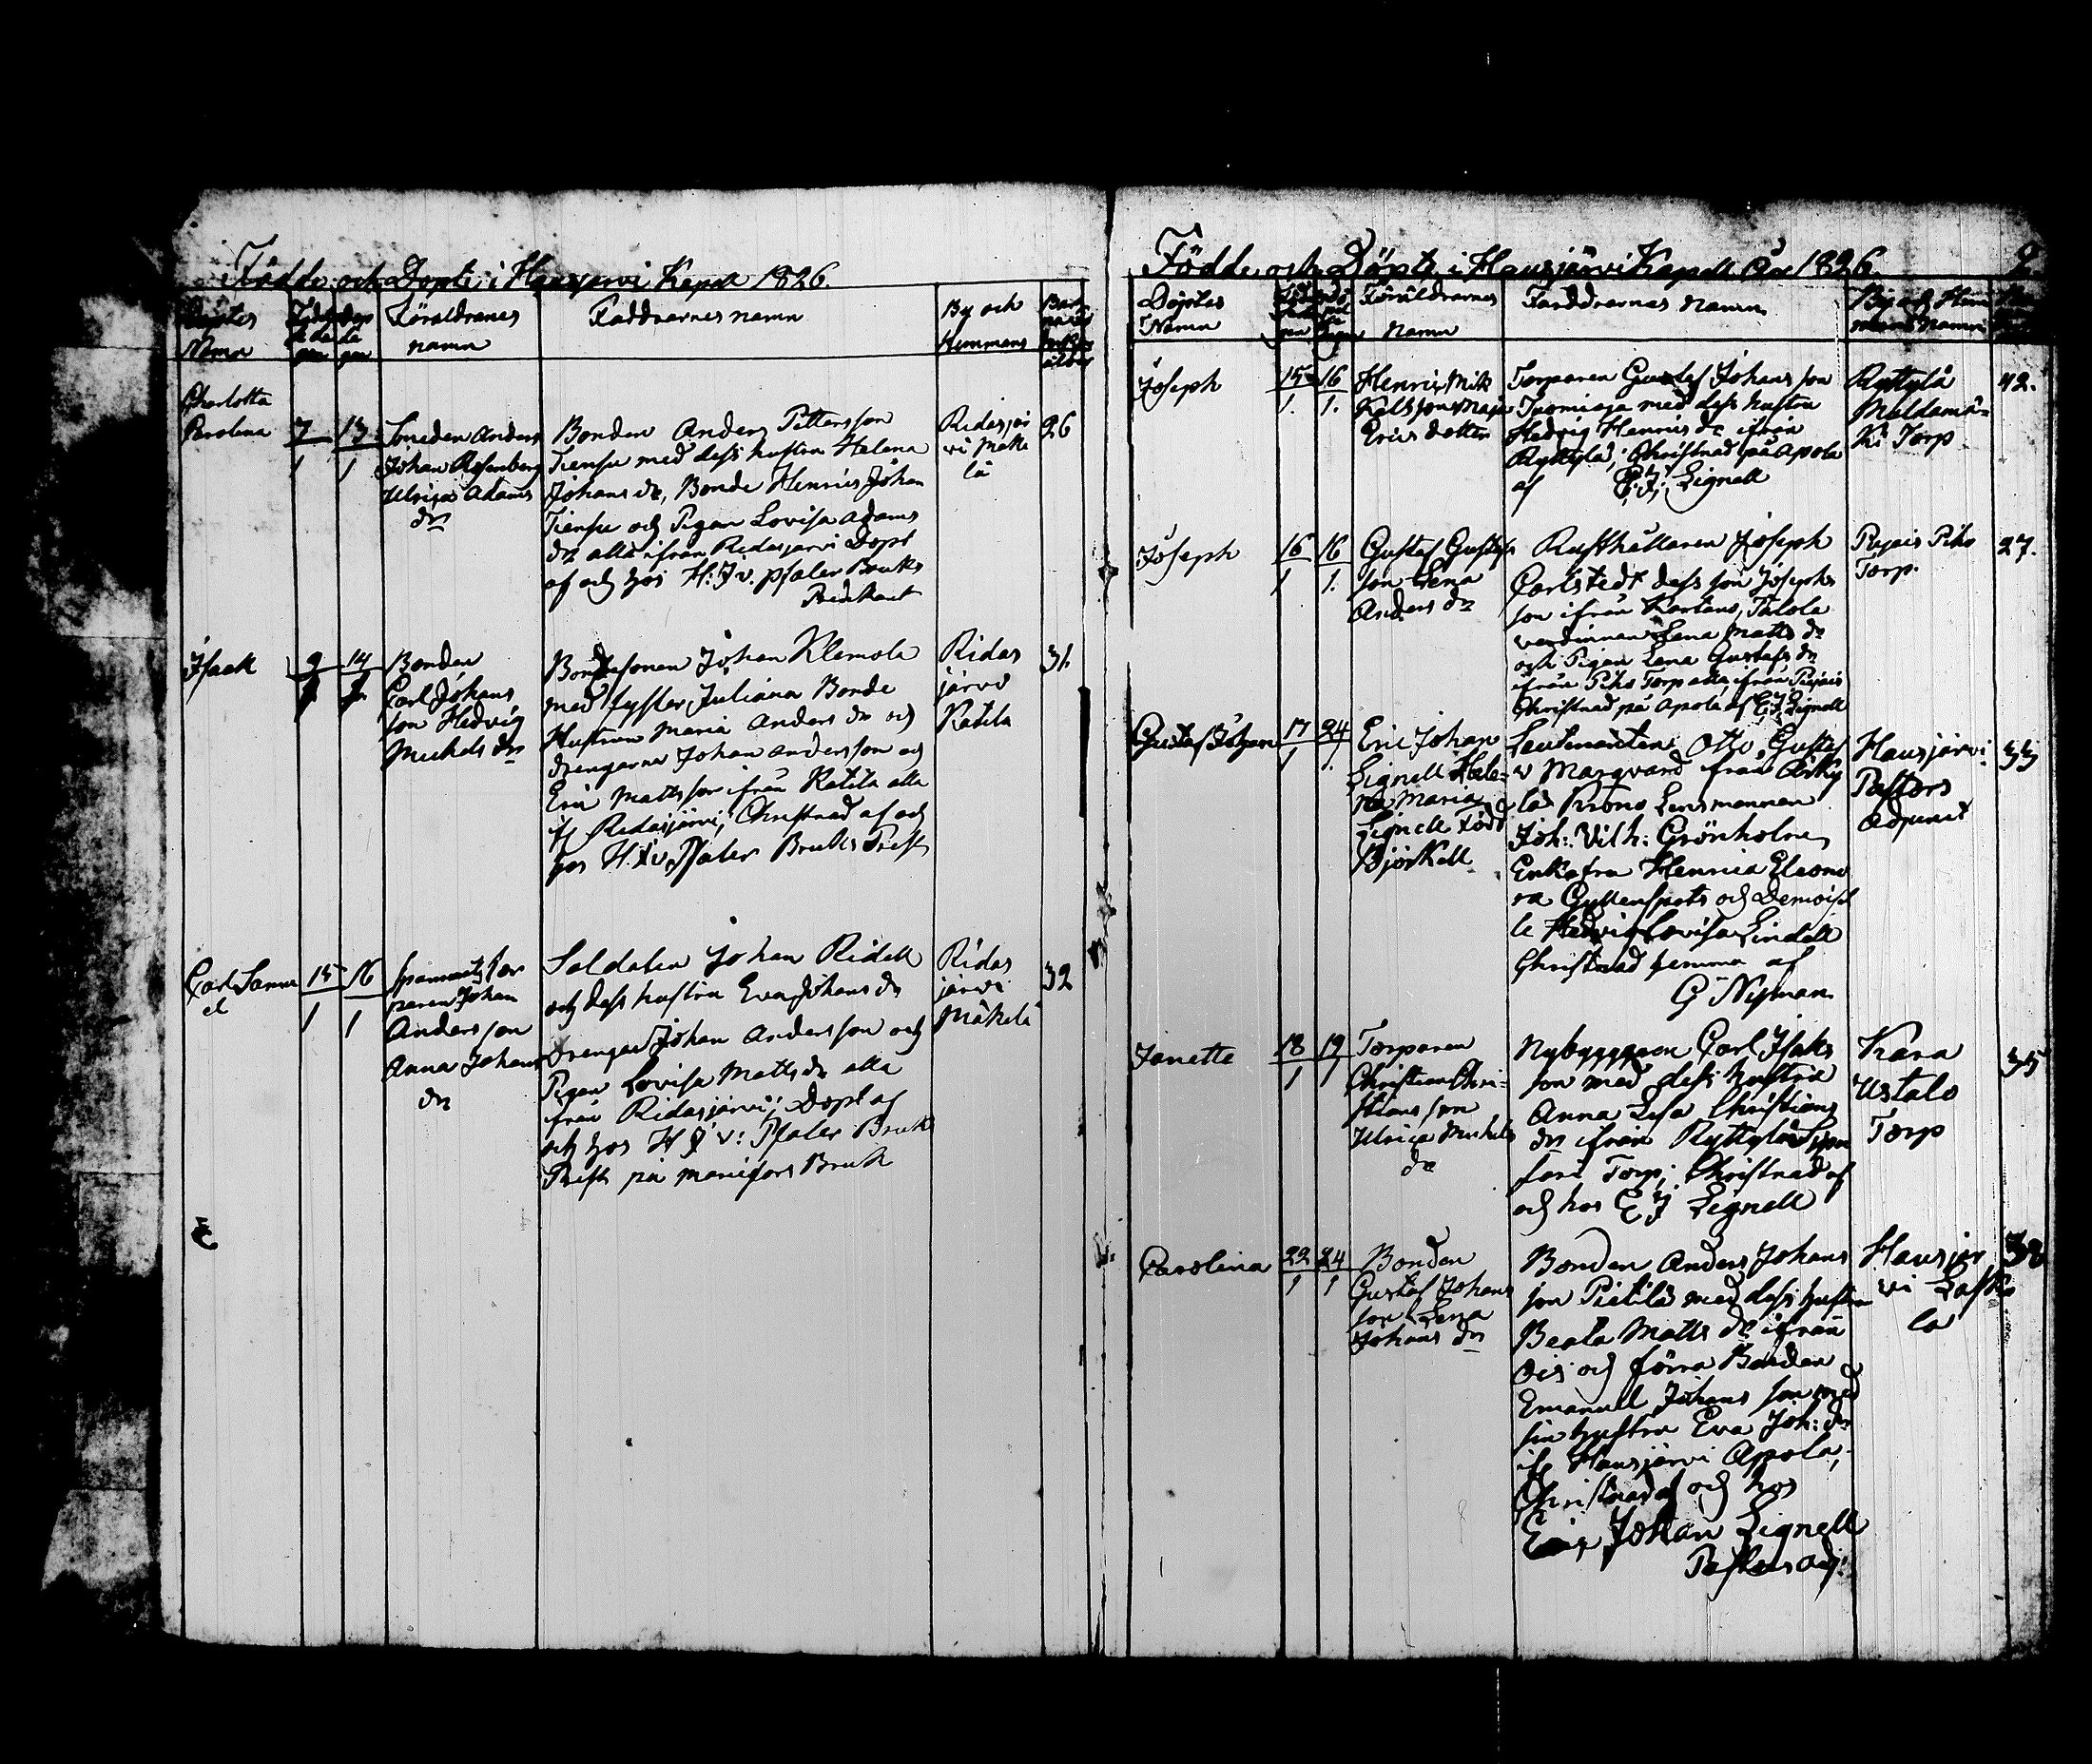 Födde och Döpte i Hausjärvi Kapell 1826.
Döptes
Namn
Föräldranes
namn
Faddrarnes namn
By och
Hemmans
Charlotta
Carolina
7 13
1 1
Smeden Anders
Johan Rosenberg
Ulrica Adams
dr
Bonden Anders Pettersson
Tiensu med dess hustru Helena
Johans dr, Bonde Henric Johan
Tiensu och Pigan Lovisa Adams
dr alla ifrån Ridasjärvi Döpt
af och hos H: J v. Pfaler Bruks
Predikant
Ridasjär
vi Mäke
lä
26
Isaak
9 14
Bonden
Carl Johans
son Hedvig
Michels dr
Bondesonen Johan Klemola
med syster Juliana Bonde
Hustrun Maria Anders dr och
drengarne Johan Andersson och
Eric Mattsson ifrån Katila alla
if Ridasjärvi; Christnad af och
hos H. J v. Pfaler Bruks Prest
Ridas
järvi
Katila
31.
Carl Samu
el
15 16
1 1
Johan
Andersson
Anna Johans
dr
Soldaten Johan Ridell
och dess hustru Eva Johans dr
Drengen Johan Andersson och
Pigan Lovisa Matts dr alla
från Ridasjärvi; Döpt af
och hos H J v: Pfaler Bruks
Prest på Bruk
Ridas
järvi
Mäkelä
32
Födde och Döpte i Hausjärvi Kapell År 1826. 2
Döptes
Namn
Föräldrarnes
namn
Fadddrarnes namn
By och Hem
mans Namn
Joseph
15 16
1. 1.
Henric Mik
kelsson Maja
Erics dotter
Torparen Gustaf Johans son
Tuomioja med dess hustru
Hedvig Henrics dr ifrån
Ryttylä; Christnad på Apola
af E: J: Lignell
Ryttylä
Maldamä-
ki Torp
42.
Joseph
16 16
1 1.
Gustaf Gustafs
son Lena
Anders dr
Rusthållaren Joseph
Carlstedt dess son Josephs
son ifrån Karlano, Talola
värdinnan Lena Matts dr
och Pigan Lena Gustafs dr
ifrån Piho Torp alla ifrån Pujais
Christnad på Apola af E J Lignell
Pujais Piho
Torp.
27.
Gustaf Johan
17 24
1 1.
Eric Johan
Lignell Hele-
na Maria
Lignell född
Björkell
Leutnanten Otto Gustaf
v Marqvard från
lä Krono Lensmannen
Joh: Vilh: Grönholm
Enkefru Henrica Eleono
ra Gyllenspets och Demoisel
le Hedvig Lovisa Lindell
Christnad hemma af
G Nyman
Hausjärvi
Pastors
Adjunct
33
Janette
18 19
1 1
Torparen
Christian Chri-
stians son
Ulrica Michels
dr
Nybyggaren Carl Isaks
son med dess hustru
Anna Lisa Christians
dr ifrån Ryttylä
Torp; Christnad af
och hos E J Lignell
Kara
Ustalo
Torp
35
Carolina
22 24
1 1
Bonden
Gustaf Johans
son Lena
Johans dr
Bonden Anders Johans
son Pietilä med dess hustru
Beata Matts dr ifrån
Ois och förra Bonden
Emanuel Johans son med
sin hustru Eva Joh: dr
if Hausjärvi Apola;
Christnad af och hos
Eric Johan Lignell
Pastors Adj:
Hausjär
vi Lasti
la
38